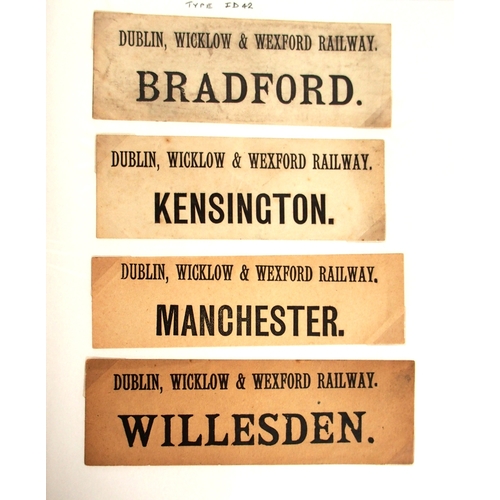 TYPE ID42
DUBLIN, WICKLOW & WEXFORD RAILWAY.
BRADFORD.
DUBLIN, WICKLOW & WEXFORD RAILWAY.
KENSINGTON.
DUBLIN, WICKLOW & WEXFORD RAILWAY.
MANCHESTER.
DUBLIN, WICKLOW & WEXFORD RAILWAY.
WILLESDEN.